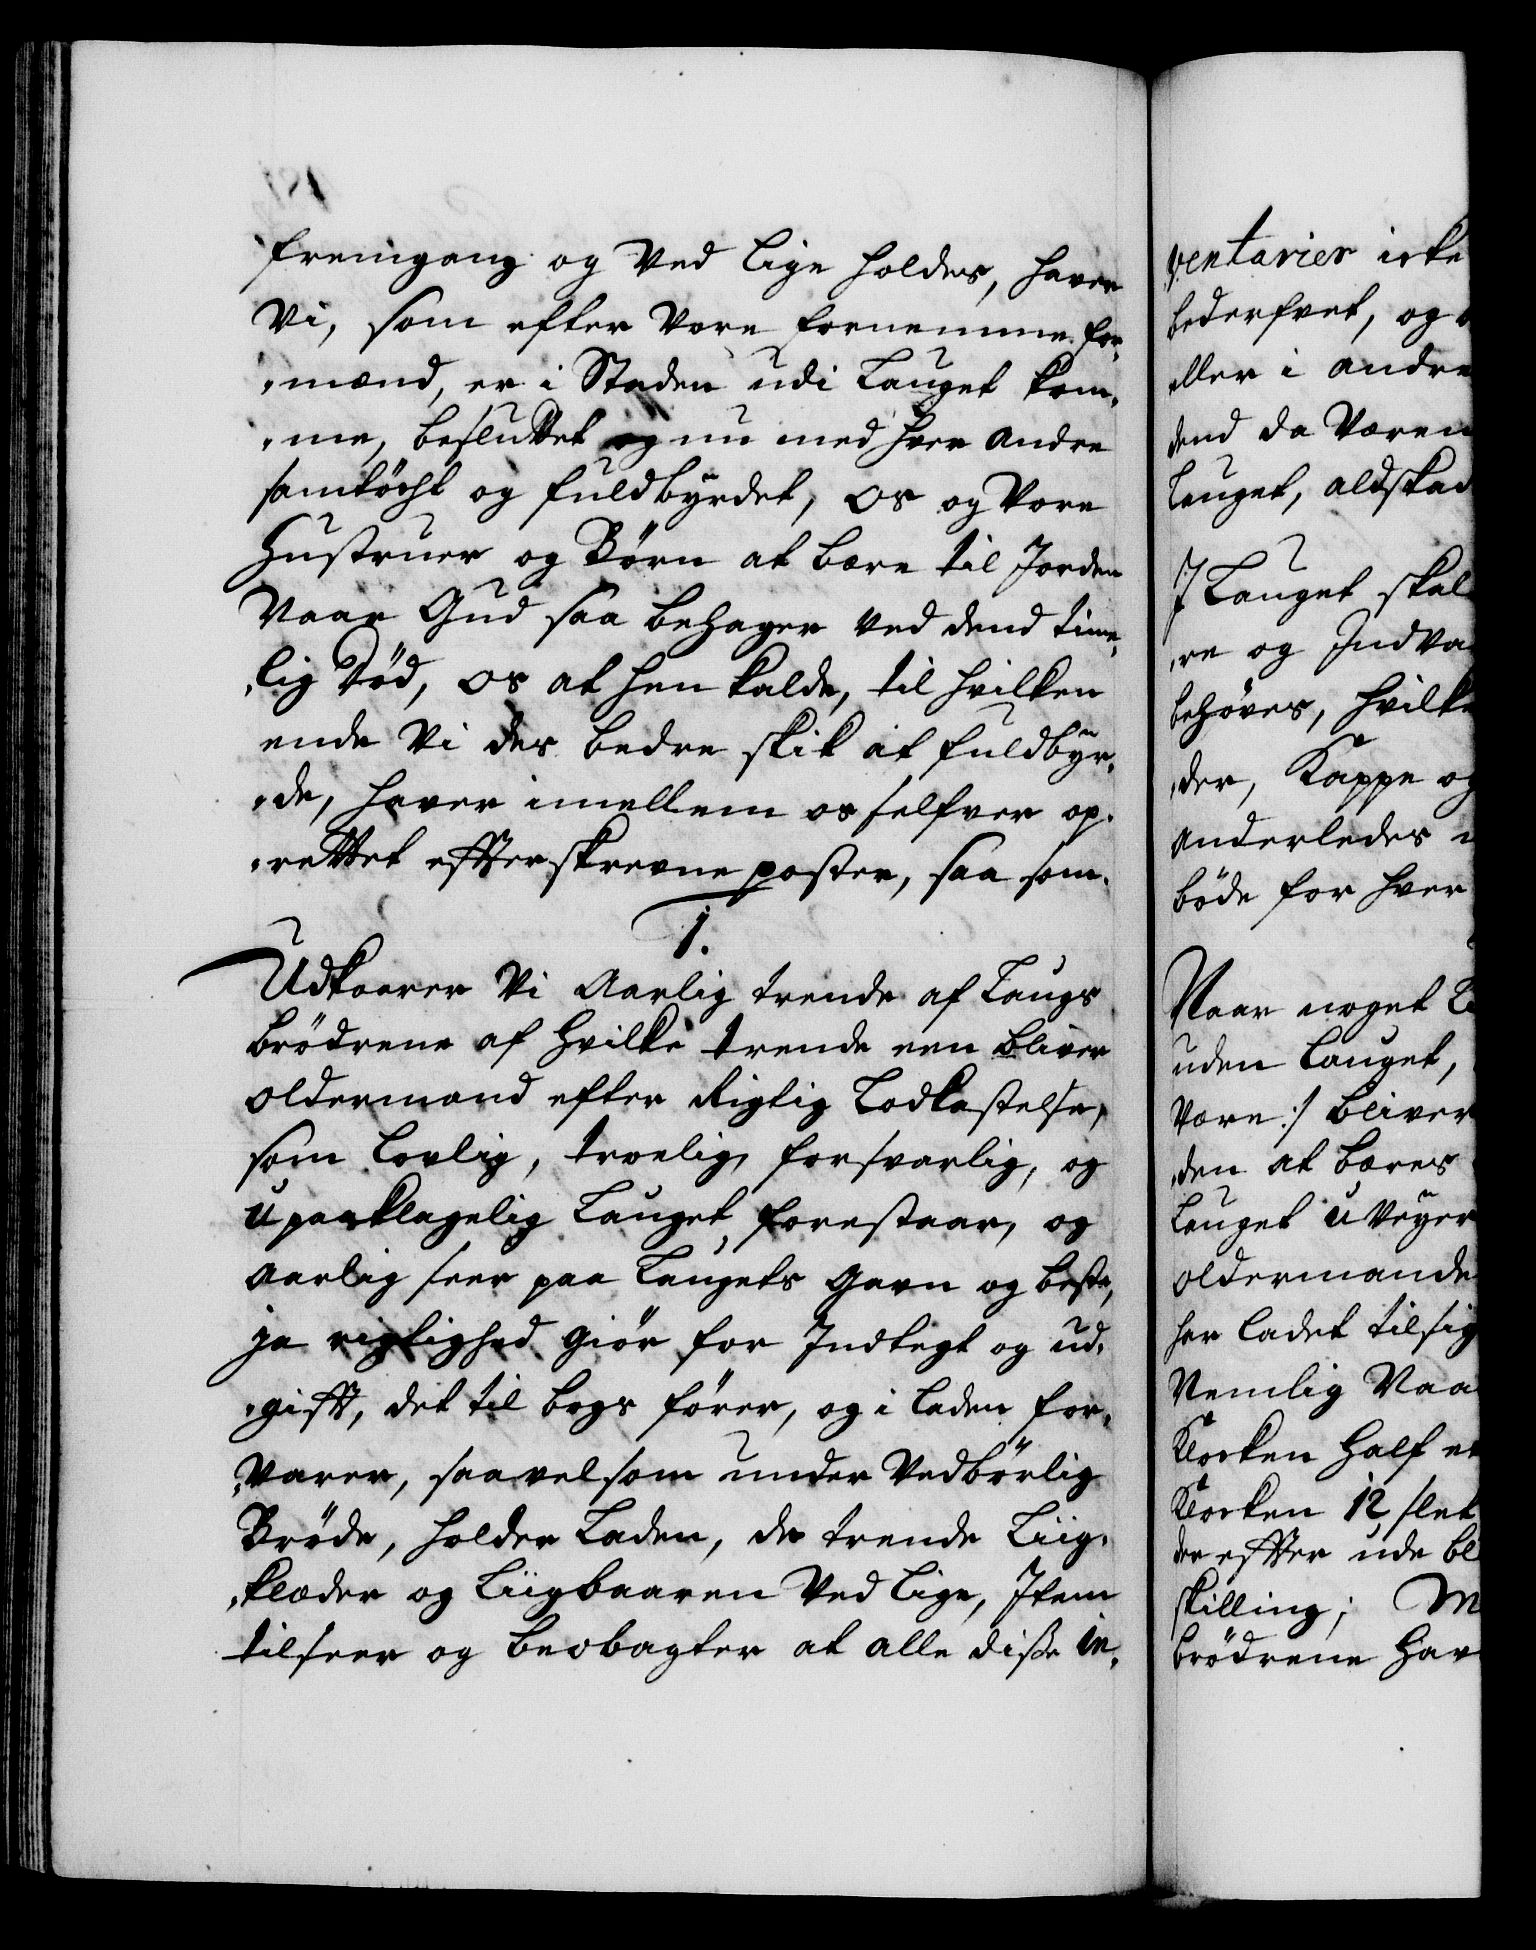 fremgang og ved lige holdes, haver
Vi, som efter vore fornemme for-
mænd, er i Staden udi Lauget kom-
me, besluttet og nu med hver andre
samtöcht og fuldbyrdet, os og vore
Hustruer og Börn at bære til Jorden
Naar Gud saa behager ved dend time-
lig Död, os at hen kalde, til hvilken
ende Vi des bedre skik at fuldbyr-
de, haver imellem os selfver op-
rettet effterskrevne poster, saa som.
1.
Udkaarer Vi Aarlig trende af Laugs
brödrene af Hvilke trende een bliver
oldermand efter Rigtig Lodkastelse,
som lovlig, troelig, forsvarlig, og
upaaklagelig Lauget forestaar, og
Aarlig seer paa Laugets Gavn og beste,
ja rigtighed giör for Indtegt og ud-
gifft, det til bogs förer, og i laden for-
varer, saavelsom under vedbörlig
Bröde, holder Laden, de trende Liig-
klæder og Liigbaaren ved lige, Item
tilseer og beobagter at alle disse in-
ventarier icke
bederfvet, og
eller i andre
dend da væren
Lauget, aldskad
I Lauget skal
re og Indva
behöves, hvilke
der, Kappe og
anderledes
böde for hver
Naar noget
uden Lauget,
vore :/ bliver
den at bæres
Lauget uveyer
oldermande
har ladet tilsig
Nemlig Naa
Klocken half
Klocken 12 slet
der effter ude bl
skilling; M
brödrene hav